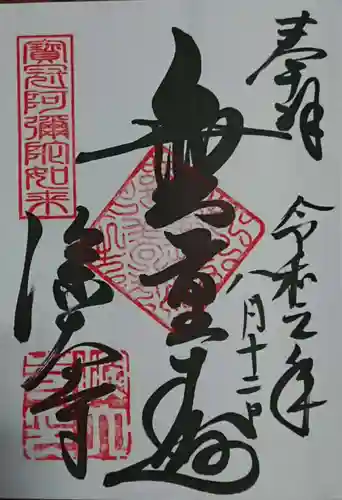 奉拝
令和二年
八月十二日
無量寿
寶冠阿彌陀如来
深大寺